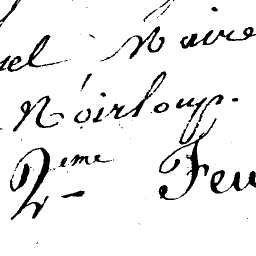 uel Maire
Noirloup.
2eme Feu